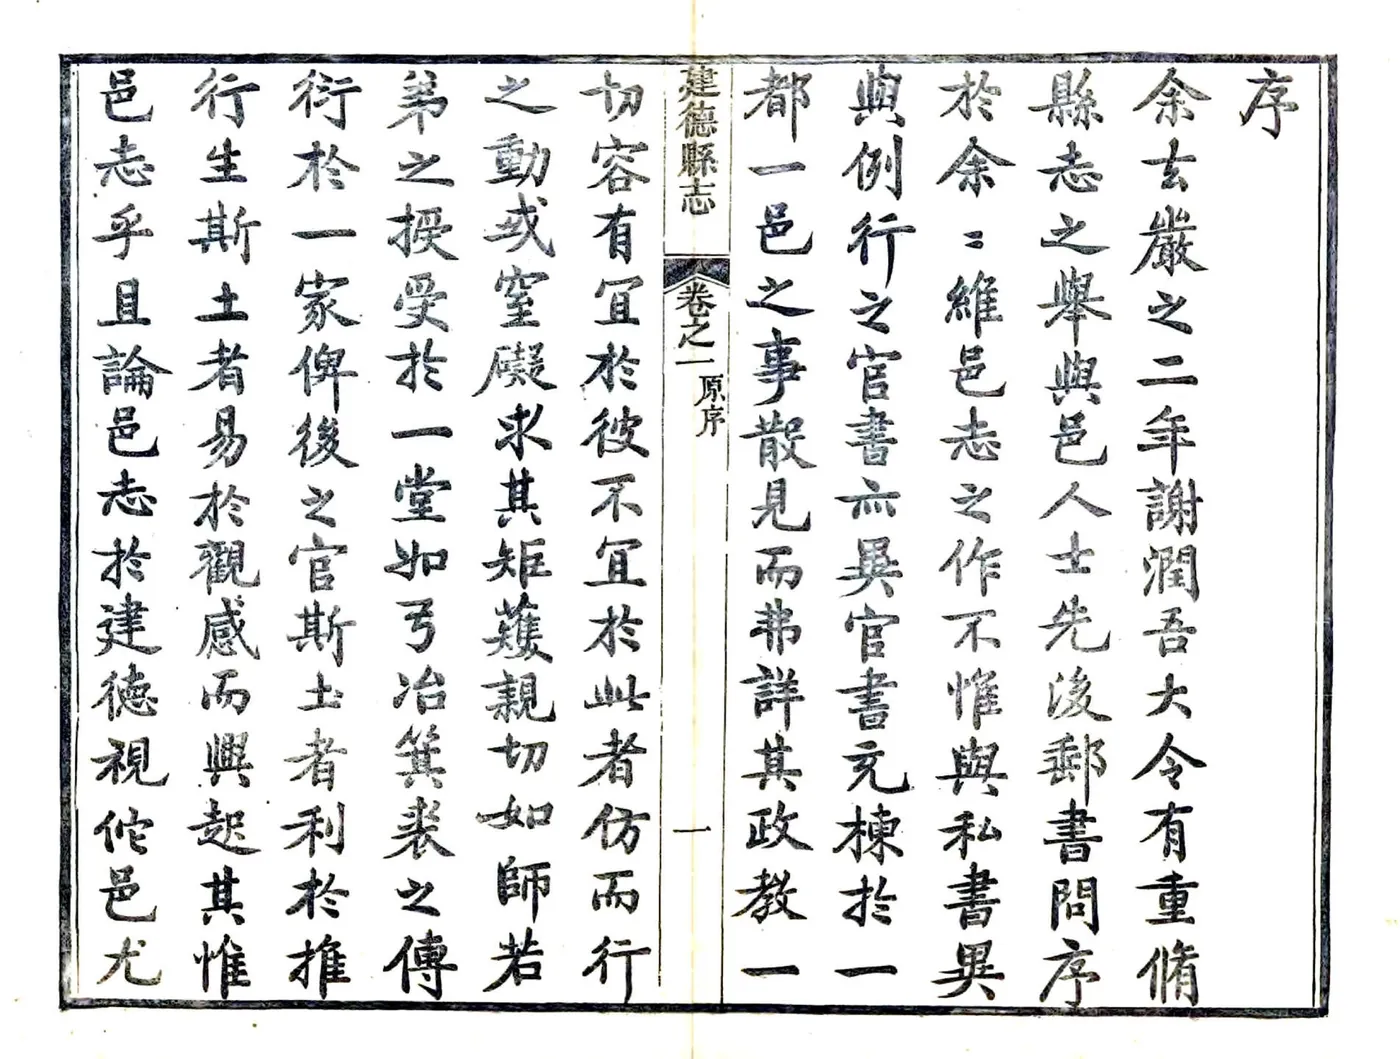 序
余玄嚴之二年謝潤吾大令有重脩
縣志之舉與邑人士先後郵書問序
於余〻維邑志之作不惟與私書異
與例行之官書亦異官書充棟於一
都一邑之事散見而弗詳其政教一
建德縣志
卷之一
原序
一
切容有宜於彼不宜於此者仿而行
之動或窒礙求其矩蒦親切如師若
弟之授受於一堂如弓冶箕裘之傳
衍於一家俾後之官斯土者利於推
行生斯土者易於觀感而興起其惟
邑志乎且論邑志於建德視佗邑尤